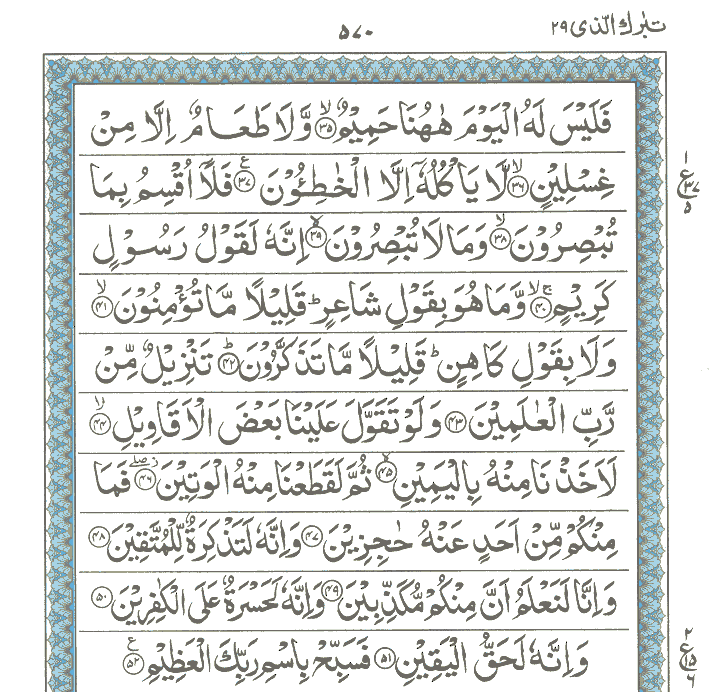 تبٰرك الّذى ٢٩
٥٧٠
فَلَيْسَ لَهُ الْيَوْمَ هٰهُنَا حَمِيْمٌ ۙ﴿٣٥﴾ وَّلَا طَعَامٌ اِلَّا مِنْ
غِسْلِيْنٍ ۙ﴿٣٦﴾ لَّا يَاْكُلُهٗۤ اِلَّا الْخٰطِـُٔوْنَ ﴿٣٧﴾ ع فَلَاۤ اُقْسِمُ بِمَا
تُبْصِرُوْنَ ۙ﴿٣٨﴾ وَمَا لَا تُبْصِرُوْنَ ۙ﴿٣٩﴾ اِنَّهٗ لَقَوْلُ رَسُوْلٍ
كَرِيْمٍ ۚۙ﴿٤٠﴾ وَّمَا هُوَ بِقَوْلِ شَاعِرٍ ؕ قَلِيْلًا مَّا تُؤْمِنُوْنَ ۙ﴿٤١﴾
وَلَا بِقَوْلِ كَاهِنٍ ؕ قَلِيْلًا مَّا تَذَكَّرُوْنَ ؕ﴿٤٢﴾ تَنْزِيْلٌ مِّنْ
رَّبِّ الْعٰلَمِيْنَ ﴿٤٣﴾ وَلَوْ تَقَوَّلَ عَلَيْنَا بَعْضَ الْاَقَاوِيْلِ ۙ﴿٤٤﴾
لَاَخَذْنَا مِنْهُ بِالْيَمِيْنِ ۙ﴿٤٥﴾ ثُمَّ لَقَطَعْنَا مِنْهُ الْوَتِيْنَ ؗۖ﴿٤٦﴾ فَمَا
مِنْكُمْ مِّنْ اَحَدٍ عَنْهُ حٰجِزِيْنَ ﴿٤٧﴾ وَاِنَّهٗ لَتَذْكِرَةٌ لِّلْمُتَّقِيْنَ ﴿٤٨﴾
وَاِنَّا لَنَعْلَمُ اَنَّ مِنْكُمْ مُّكَذِّبِيْنَ ﴿٤٩﴾ وَاِنَّهٗ لَحَسْرَةٌ عَلَى الْكٰفِرِيْنَ ﴿٥٠﴾
وَاِنَّهٗ لَحَقُّ الْيَقِيْنِ ﴿٥١﴾ فَسَبِّحْ بِاسْمِ رَبِّكَ الْعَظِيْمِ ﴿٥٢﴾ ع
١
ع ٣٧
٥
٢
ع ١٥
٦